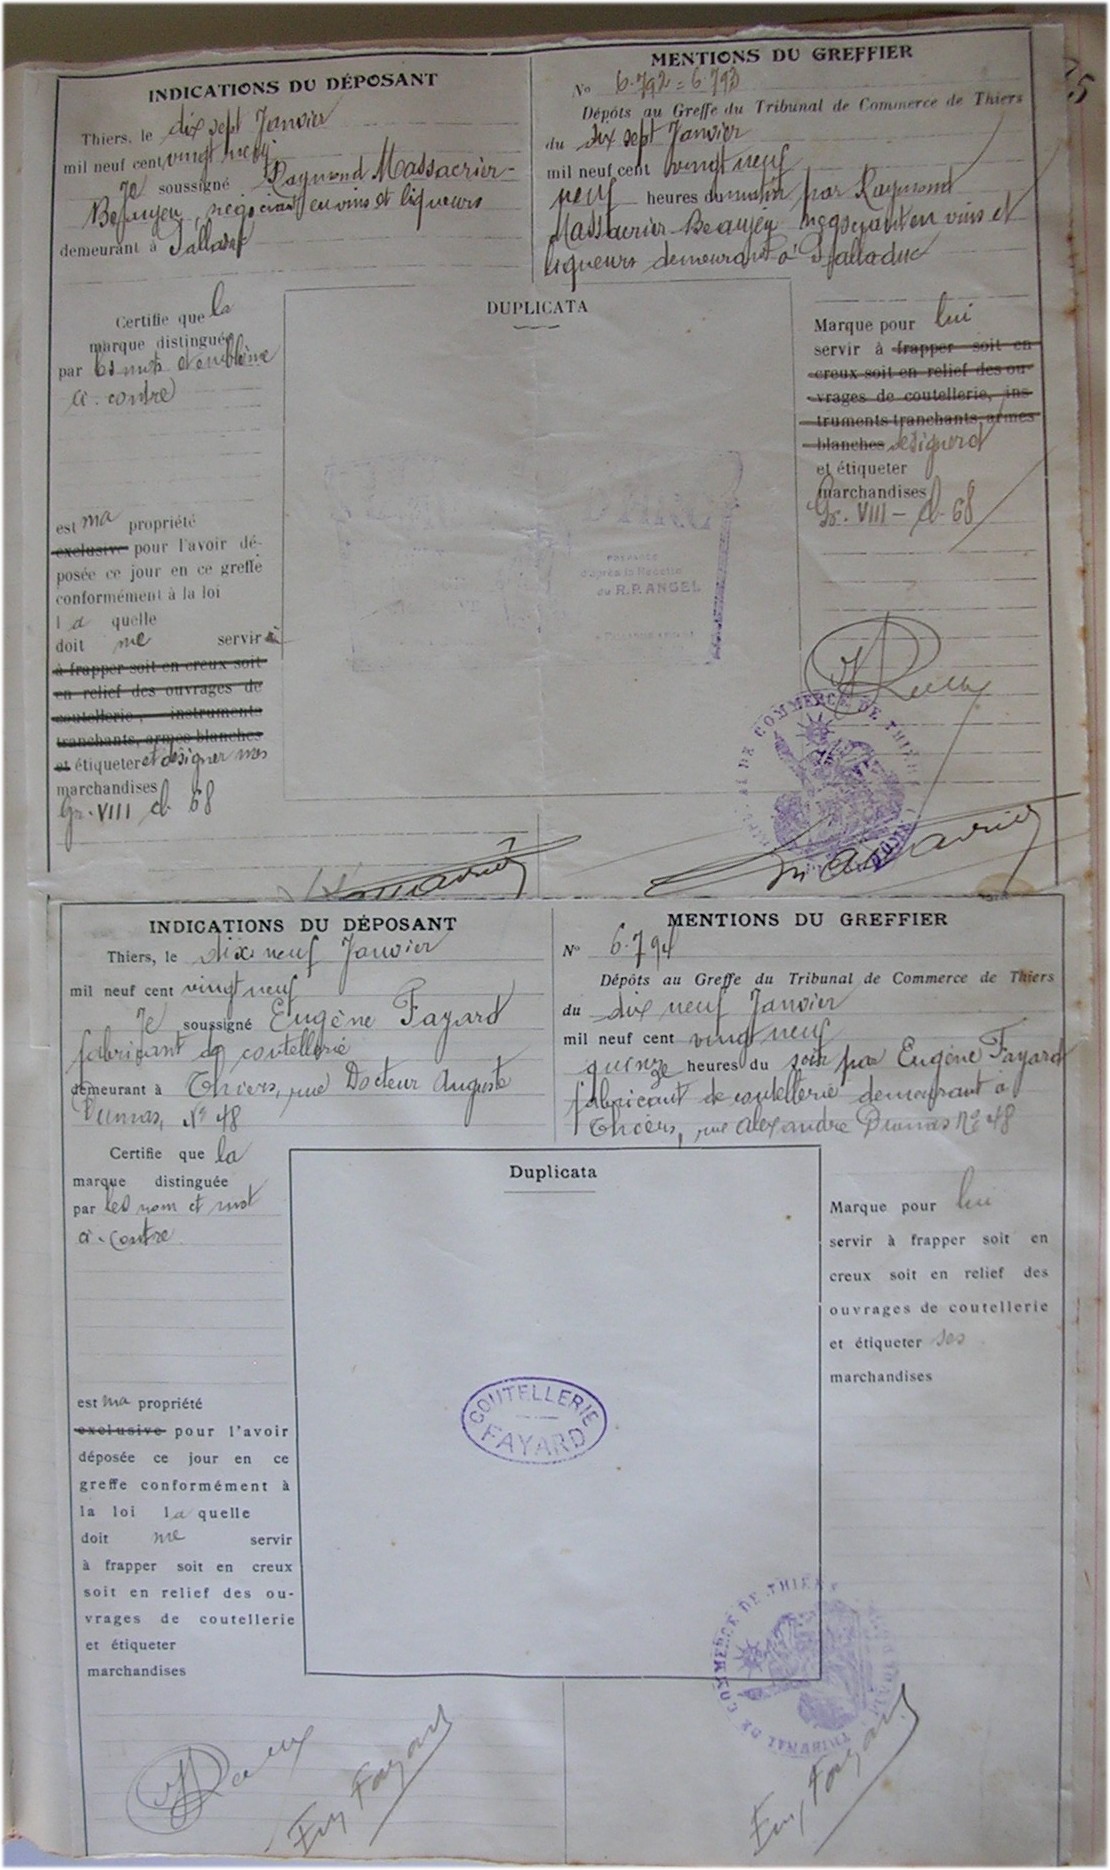 INDICATIONS DU DÉPOSANT
Thiers, le dix sept Janvier
mil neuf cent vingt neuf
Je soussigné Raymond Massacrier-
Beaujeu, négociant en vins et liqueurs
demeurant à
Certifie que la
marque distinguée
par les mots et emblème
ci-contre
est ma propriété
exclusive pour l'avoir dé-
posée ce jour en ce greffe
conformément à la loi
la quelle
doit me servir à
à frapper soit en creux soit
en relief des ouvrages de
coutellerie, instruments
tranchants, armes blanches
et étiqueter et désigner mes
marchandises
Gr. VIII cl. 68
MENTIONS DU GREFFIER
No 6.792 = 6.793
Dépôts au Greffe du Tribunal de Commerce de Thiers
du dix sept Janvier
mil neuf cent vingt neuf
neuf heures du matin par Raymond
Massacrier-Beaujeu négociant en vins et
liqueurs demeurant à Palladuc
DUPLICATA
d'après la Recette
du R.P. ANGEL
Marque pour lui
servir à frapper soit en
creux soit en relief des ou-
vrages de coutellerie, ins-
truments tranchants, armes
blanches désigner
et étiqueter
marchandises
Gr. VIII - cl. 68
COMMERCE DE THIERS
Massacrier
Massacrier
INDICATIONS DU DÉPOSANT
Thiers, le dix neuf Janvier
mil neuf cent vingt neuf
Je soussigné Eugène Fayard
fabricant de coutellerie
demeurant à Thiers, rue Docteur Auguste
Dumas, No 48
Certifie que la
marque distinguée
par les nom et mot
ci-contre
est ma propriété
exclusive pour l'avoir
déposée ce jour en ce
greffe conformément à
la loi la quelle
doit me servir
à frapper soit en creux
soit en relief des ou-
vrages de coutellerie
et étiqueter
marchandises
MENTIONS DU GREFFIER
No 6.794
Dépôts au Greffe du Tribunal de Commerce de Thiers
du dix neuf Janvier
mil neuf cent vingt neuf
quinze heures du soir par Eugène Fayard
fabricant de coutellerie demeurant à
Thiers, rue Alexandre Dumas No 48
Duplicata
COUTELLERIE
FAYARD
Marque pour lui
servir à frapper soit en
creux soit en relief des
ouvrages de coutellerie
et étiqueter ses
marchandises
TRIBUNAL DE COMMERCE DE THIERS
Eug Fayard
Eug Fayard